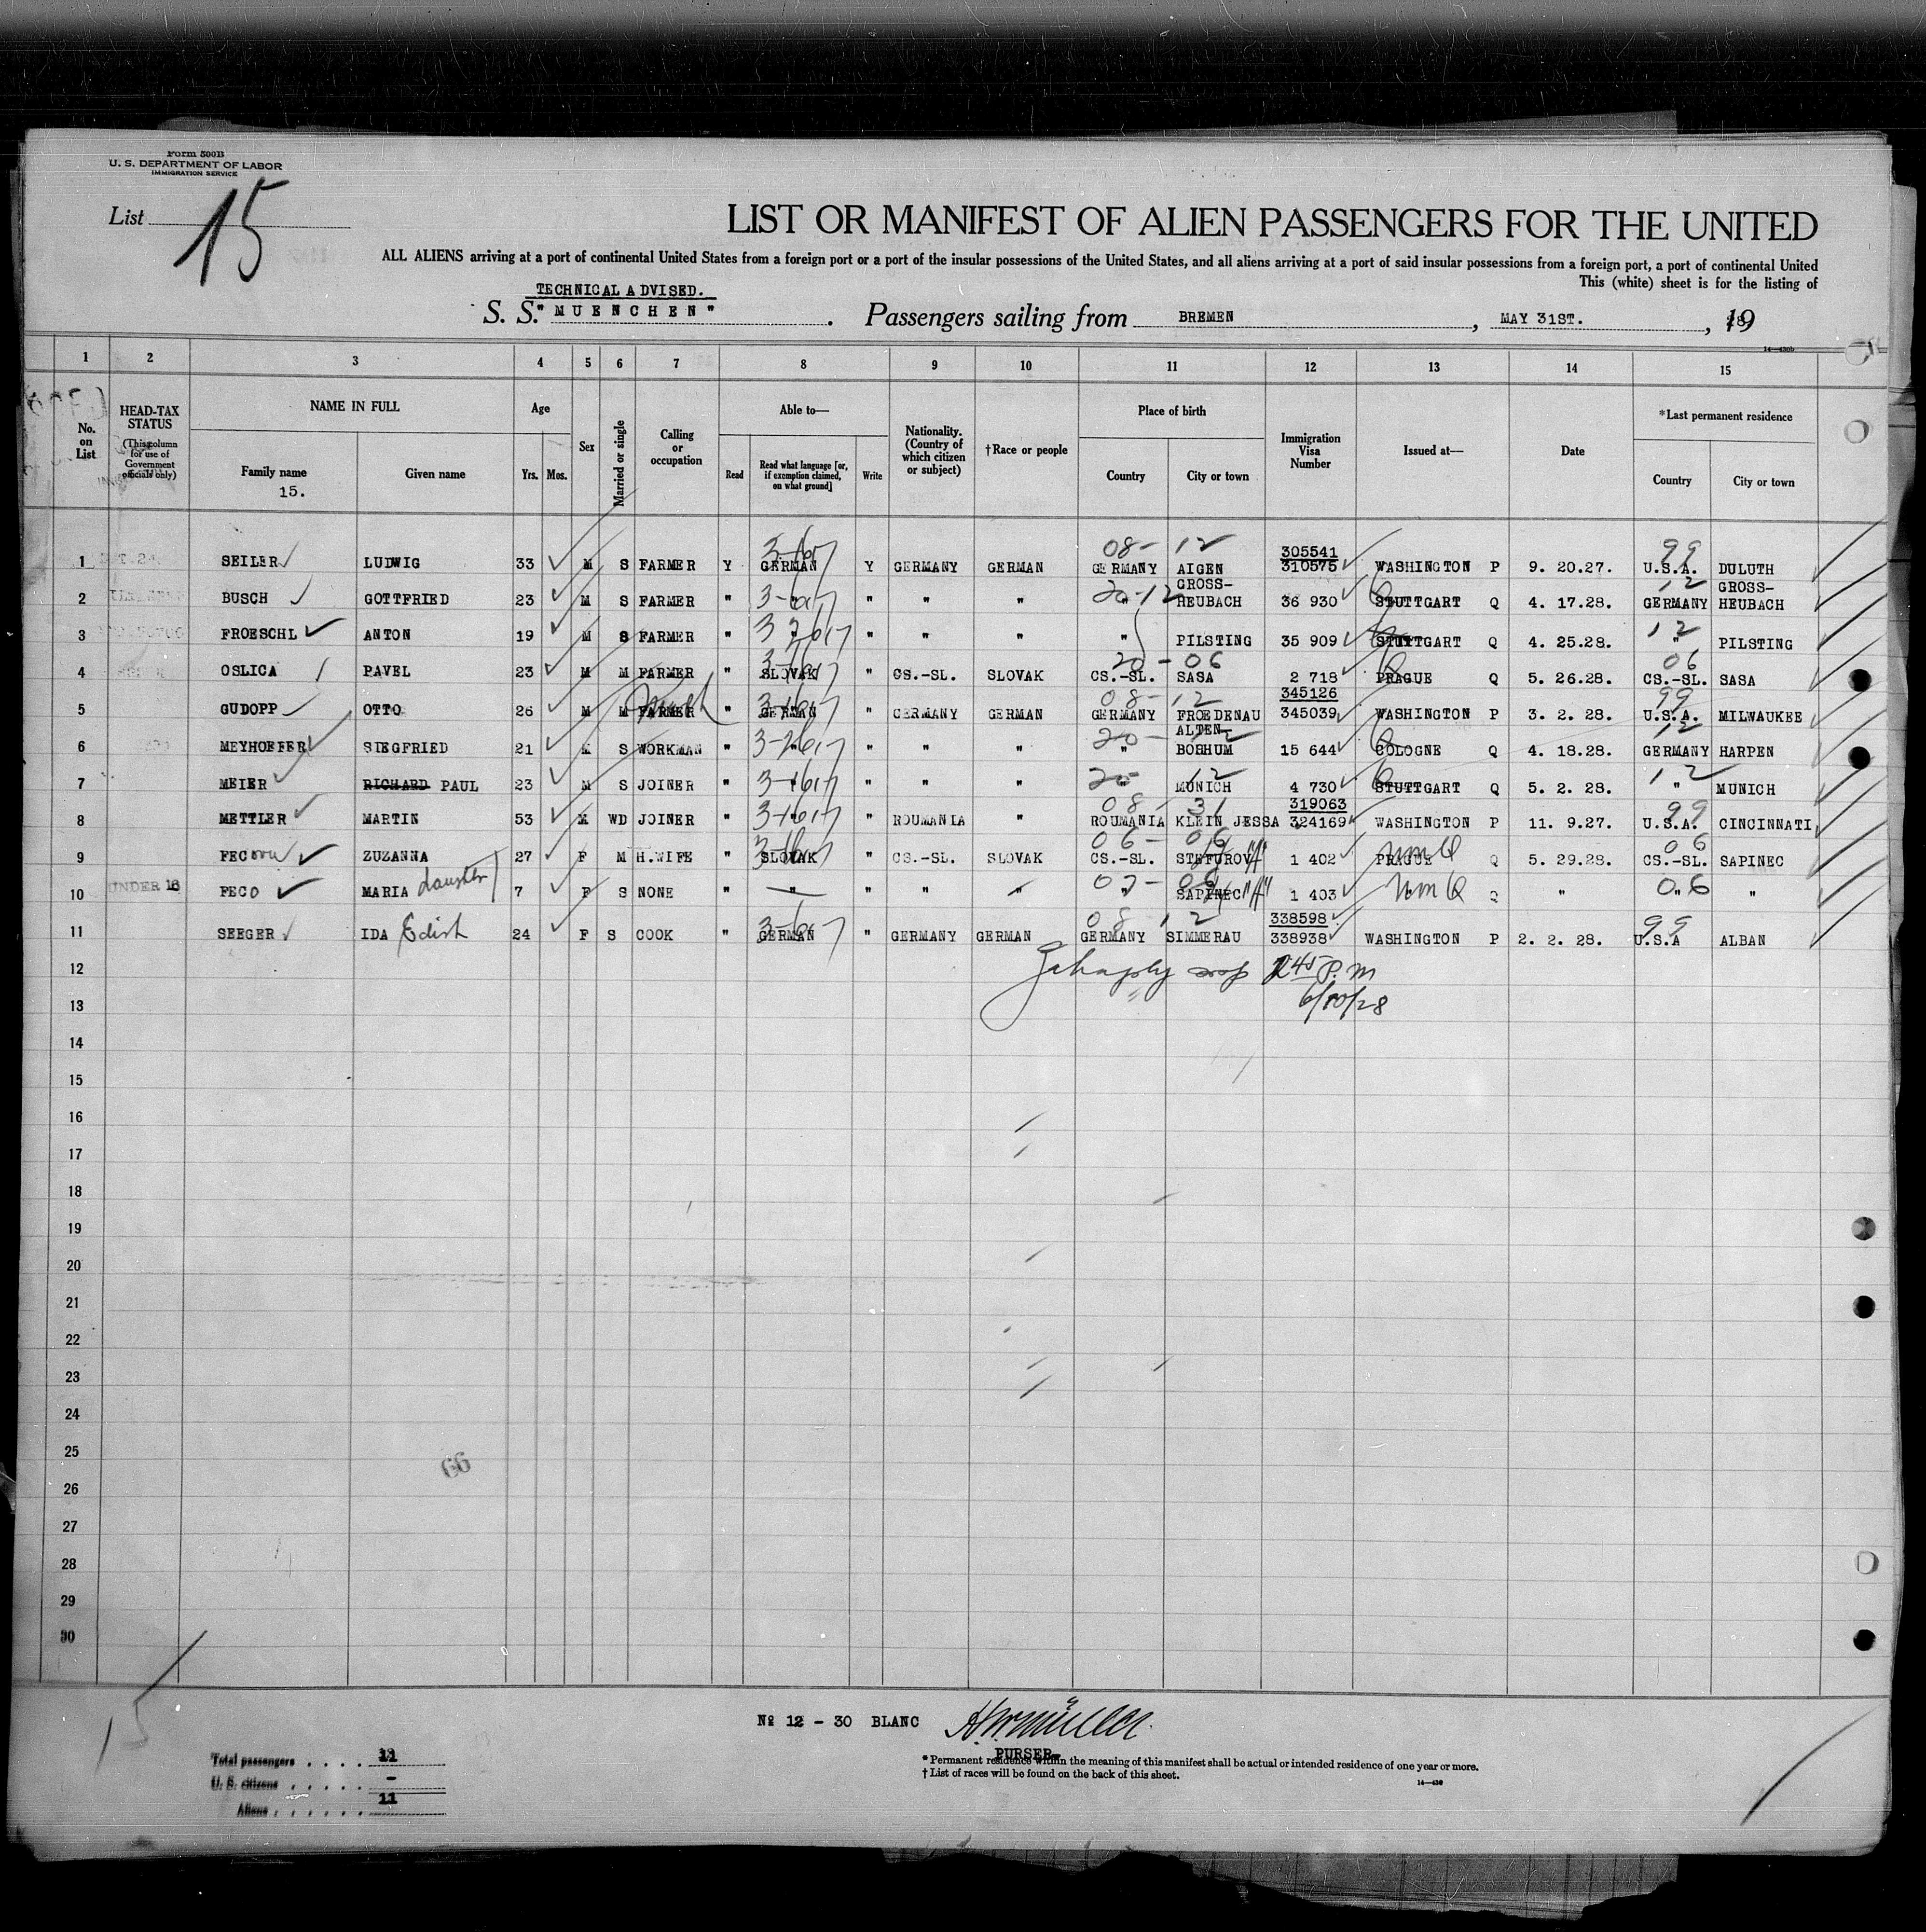 Form 500B
U. S. DEPARTMENT OF LABOR
IMMIGRATION SERVICE
List 15
LIST OR MANIFEST OF ALIEN PASSENGERS FOR THE UNITED
ALL ALIENS arriving at a port of continental United States from a foreign port or a port of the insular possessions of the United States, and all aliens arriving at a port of said insular possessions from a foreign port, a port of continental United
This (white) sheet is for the listing of
TECHNICAL ADVISED.
S. S. "MUENCHEN". Passengers sailing from BREMEN, MAY 31ST., 1928
14—430b
1 2 3 4 5 6 7 8 9 10 11 12 13 14 15
No. on List
HEAD-TAX STATUS (This column for use of Government officials only)
NAME IN FULL
Family name 15.
Given name
Age
Yrs. Mos.
Sex
Married or single
Calling or occupation
Able to—
Read
Read what language [or, if exemption claimed, on what ground]
Write
Nationality. (Country of which citizen or subject)
†Race or people
Place of birth
Country
City or town
Immigration Visa Number
Issued at—
Date
*Last permanent residence
Country
City or town
08- 12 305541 99
1 SEILER LUDWIG 33 M S FARMER Y GERMAN Y GERMANY GERMAN GERMANY AIGEN 310575 WASHINGTON P 9. 20.27. U.S.A. DULUTH
2 BUSCH GOTTFRIED 23 M S FARMER " " " " " 20-12 " GROSS-HEUBACH 36 930 STUTTGART Q 4. 17.28. 12 GERMANY GROSS-HEUBACH
3 FROESCHL ANTON 19 M S FARMER " " " " " " PILSTING 35 909 STUTTGART Q 4. 25.28. 12 " PILSTING
20 - 06 06
4 OSLICA PAVEL 23 M M FARMER " SLOVAK " CS.-SL. SLOVAK CS.-SL. SASA 2 718 PRAGUE Q 5. 26.28. CS.-SL. SASA
08- 12 345126 99
5 GUDOPP OTTO 26 M M FARMER " GERMAN " GERMANY GERMAN GERMANY FROEDENAU 345039 WASHINGTON P 3. 2. 28. U.S.A. MILWAUKEE
20- 12 12
6 MEYHOEFER SIEGFRIED 21 M S WORKMAN " " " " " " ALTEN-BOSHUM 15 644 COLOGNE Q 4. 18.28. GERMANY HARPEN
20- 12 12
7 MEIER RICHARD PAUL 23 M S JOINER " " " " " MUNICH 4 730 STUTTGART Q 5. 2. 28. " MUNICH
08- 31 319063 99
8 METTLER MARTIN 53 M WD JOINER " " " ROUMANIA " ROUMANIA KLEIN JESSA 324169 WASHINGTON P 11. 9.27. U.S.A. CINCINNATI
06- 06 06
9 FECOVA ZUZANNA 27 F M H.WIFE " SLOVAK " CS.-SL. SLOVAK CS.-SL. STEFUROV "A" 1 402 PRAGUE NMQ Q 5. 29.28. CS.-SL. SAPINEC
10 UNDER 16 FECO MARIA daughter 7 F S NONE " " " " " " SAPINEC "A" 1 403 " NMQ Q " 06 " "
08 12 338598 99
11 SEEGER IDA Edith 24 F S COOK " GERMAN " GERMANY GERMAN GERMANY SIMMERAU 338938 WASHINGTON P 2. 2. 28. U.S.A ALBAN
12 245 P.M
13 6/10/28
14
15
16
17
18
19
20
21
22
23
24
25
26
27
28
29
30
66
15
Nº 12 - 30 BLANC
PURSER.
Total passengers . . . . 11
U. S. citizens . . . . . -
Aliens . . . . . . 11
* Permanent residence within the meaning of this manifest shall be actual or intended residence of one year or more.
† List of races will be found on the back of this sheet.
14—430